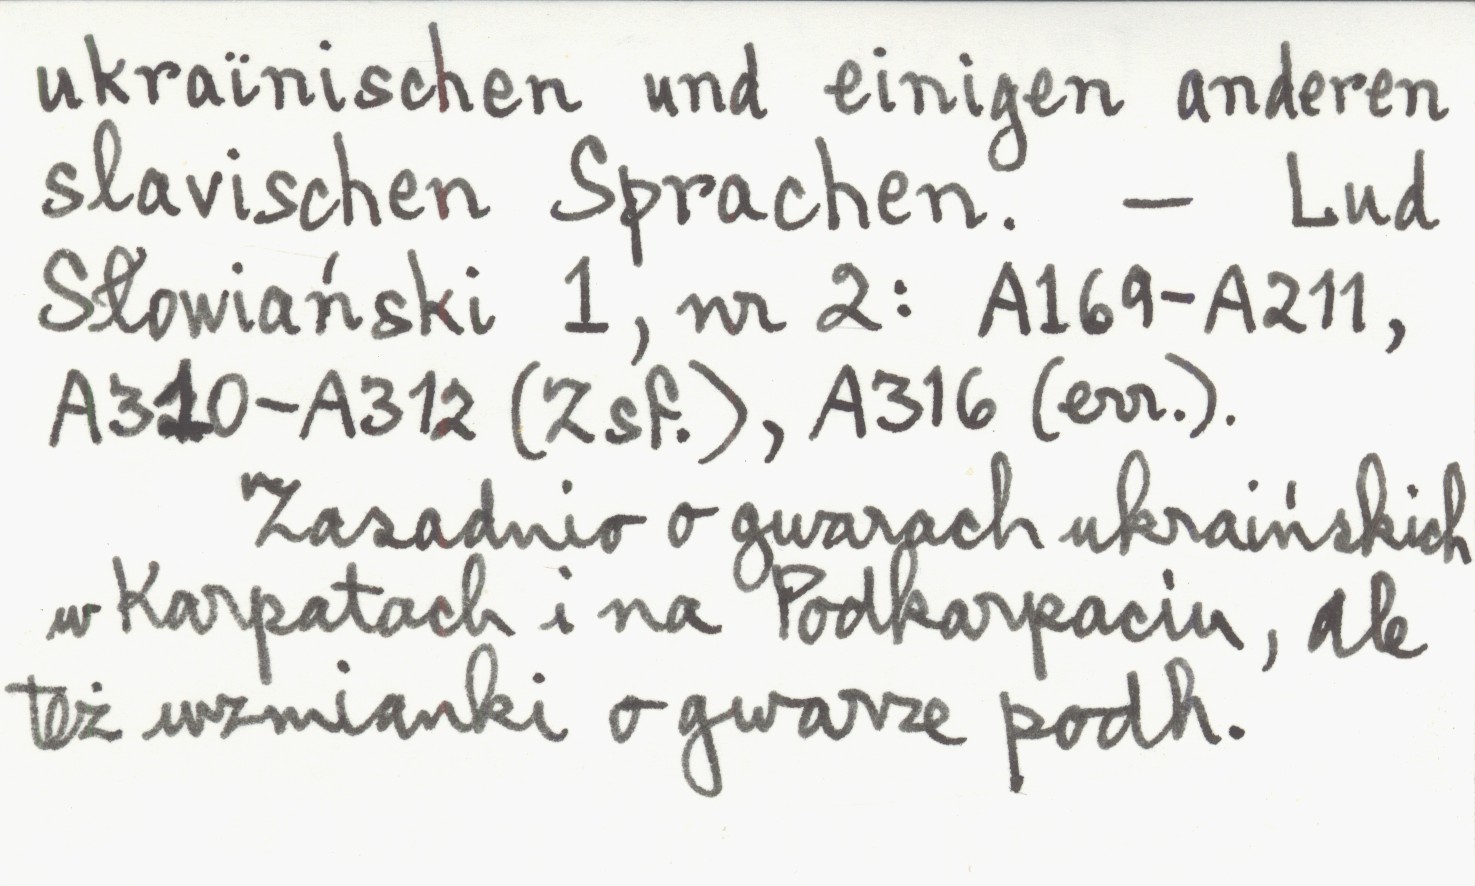 ukraïnischen und einigen anderen
slavischen Sprachen. — Lud
Słowiański 1, nr 2: A169-A211,
A310-A312 (Zsf.), A316 (err.).
Zasadnio o gwarach ukraińskich
w Karpatach i na Podkarpaciu, ale
też wzmianki o gwarze podh.